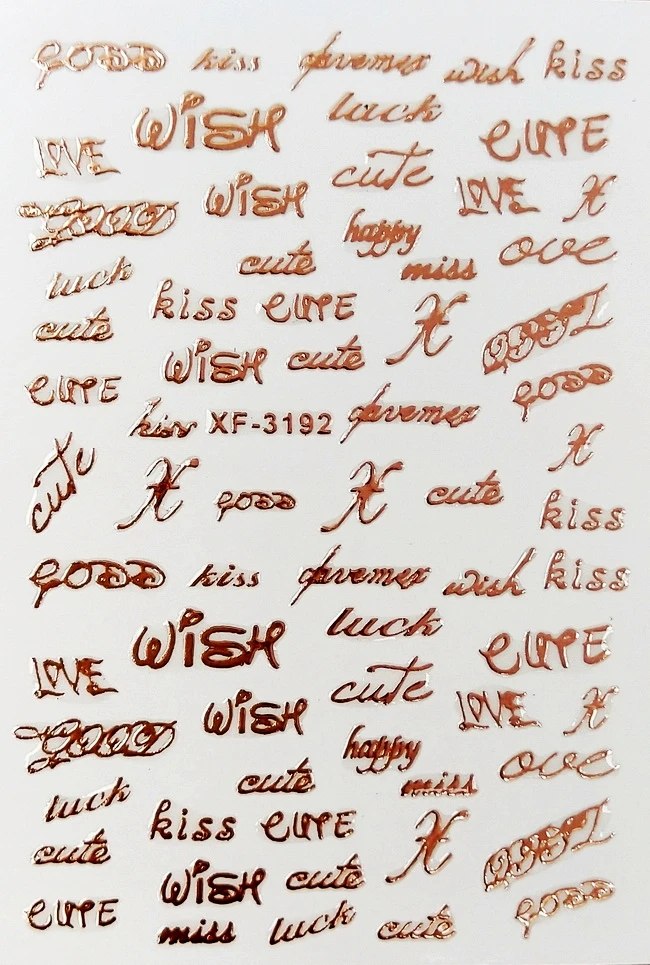 GOOD kiss wish kiss
WISH luck
LOVE CUTE
WISH cute LOVE X
GOOD happy ove
luck cute miss
kiss CUTE X
cute WISH cute
CUTE GOOD
kiss XF-3192
cute X
X GOOD X cute kiss
GOOD kiss wish kiss
WISH luck
LOVE CUTE
WISH cute LOVE X
GOOD happy ove
luck cute miss
kiss CUTE X
cute WISH cute
CUTE GOOD
miss luck cute